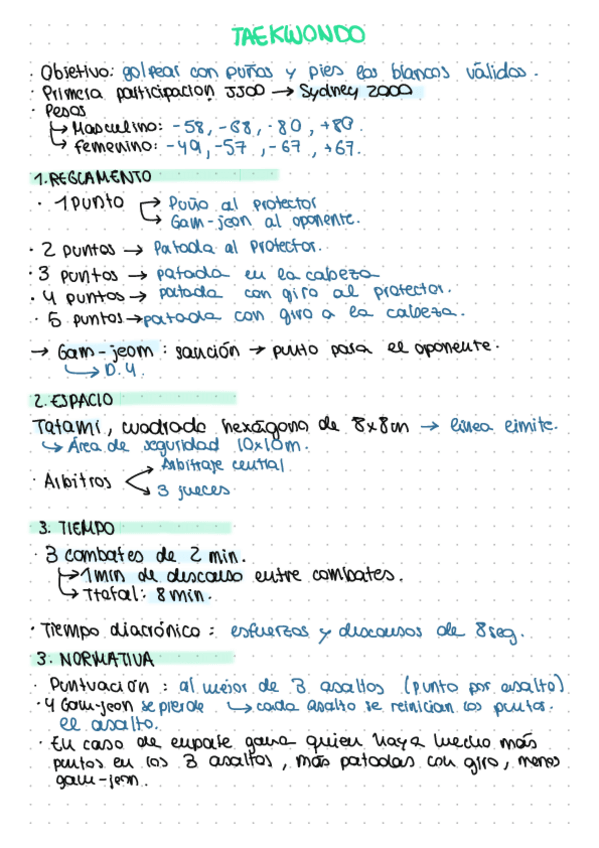 TAEKWONDO
· Objetivo: golpear con puños y pies los blancos válidos.
· Primera participación JJOO → Sydney 2000
· Pesos
↳ Masculino: -58, -68, -80, +80.
↳ femenino: -49, -57, -67, +67.
1. REGLAMENTO
· 1 punto → Puño al protector
→ Gam-jeon al oponente.
· 2 puntos → Patada al protector.
· 3 puntos → patada en la cabeza
· 4 puntos → patada con giro al protector.
· 5 puntos → patada con giro a la cabeza.
→ Gam-jeom: sanción → punto para el oponente.
↳ D.4.
2. ESPACIO
Tatami, cuadrado hexágono de 8x8m → línea límite.
↳ Área de seguridad 10x10m.
· Arbitros → Arbitraje central
→ 3 jueces
3. TIEMPO
· 3 combates de 2 min.
↳ 1 min de descanso entre combates.
↳ Ttotal: 8 min.
· Tiempo diacrónico: esfuerzos y descansos de 8 seg.
3. NORMATIVA
· Puntuación: al mejor de 3 asaltos (punto por asalto)
· 4 Gam-jeon se pierde ↳ cada asalto se reinician los puntos.
el asalto.
· En caso de empate gana quien haya hecho más
puntos en los 3 asaltos, más patadas con giro, menos
gam-jeon.